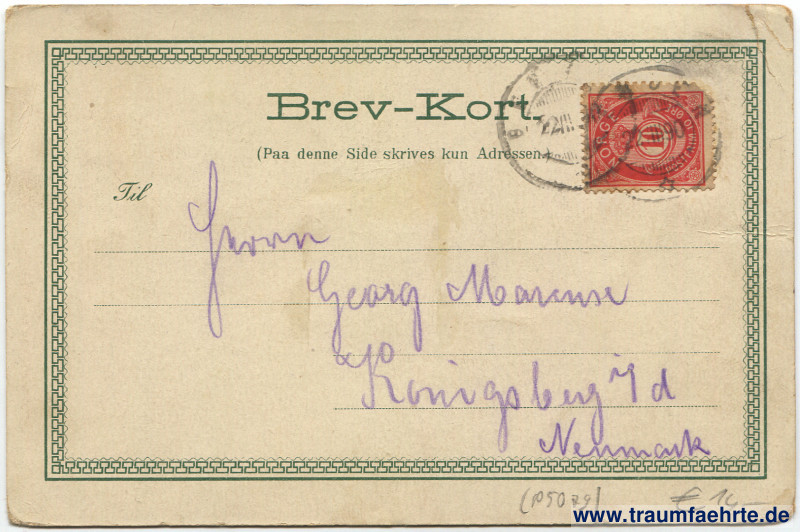 Brev-Kort.
(Paa denne Side skrives kun Adressen.)
Til
Herrn
Georg Marcuse
Königsberg i/d
Neumark
NORGE
10
€ 14.-
www.traumfaehrte.de